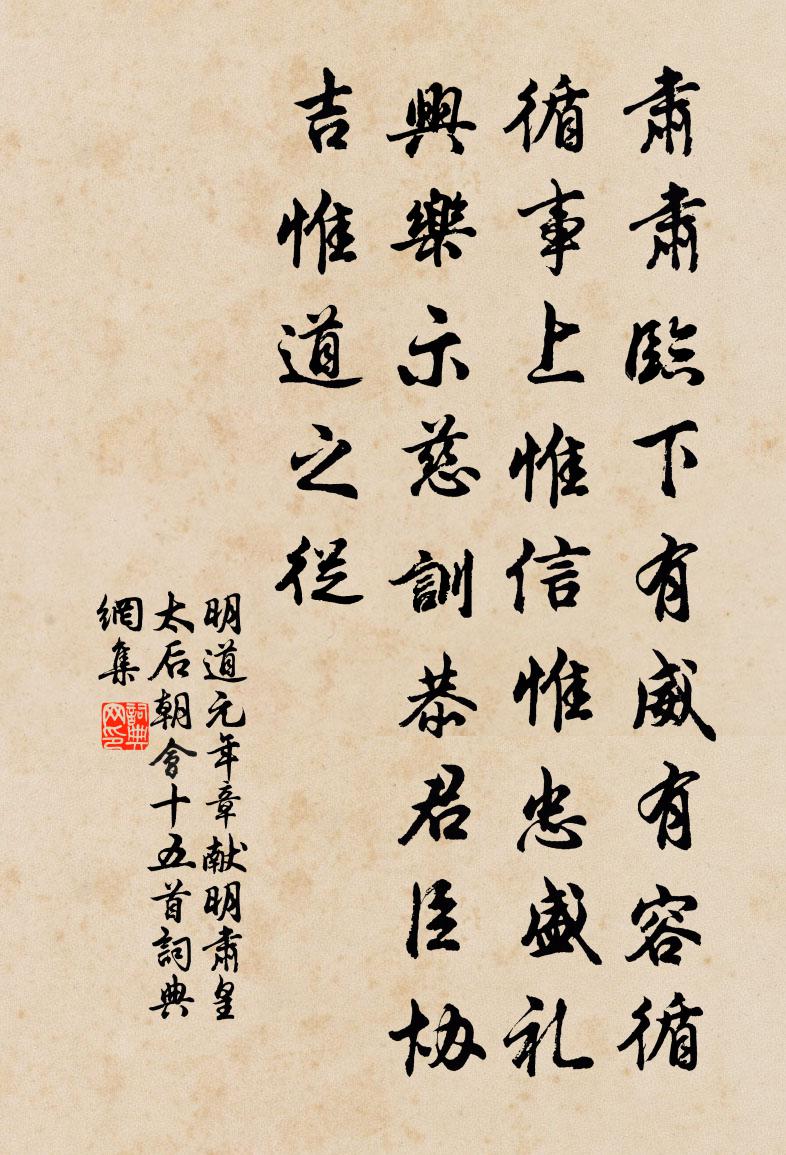 肅肅臨下有威有容循
循事上惟信惟忠盛礼
興樂示慈訓恭君臣协
吉惟道之從
明道元年章献明肅皇
太后朝會十五首詞典
網集
詞典网印